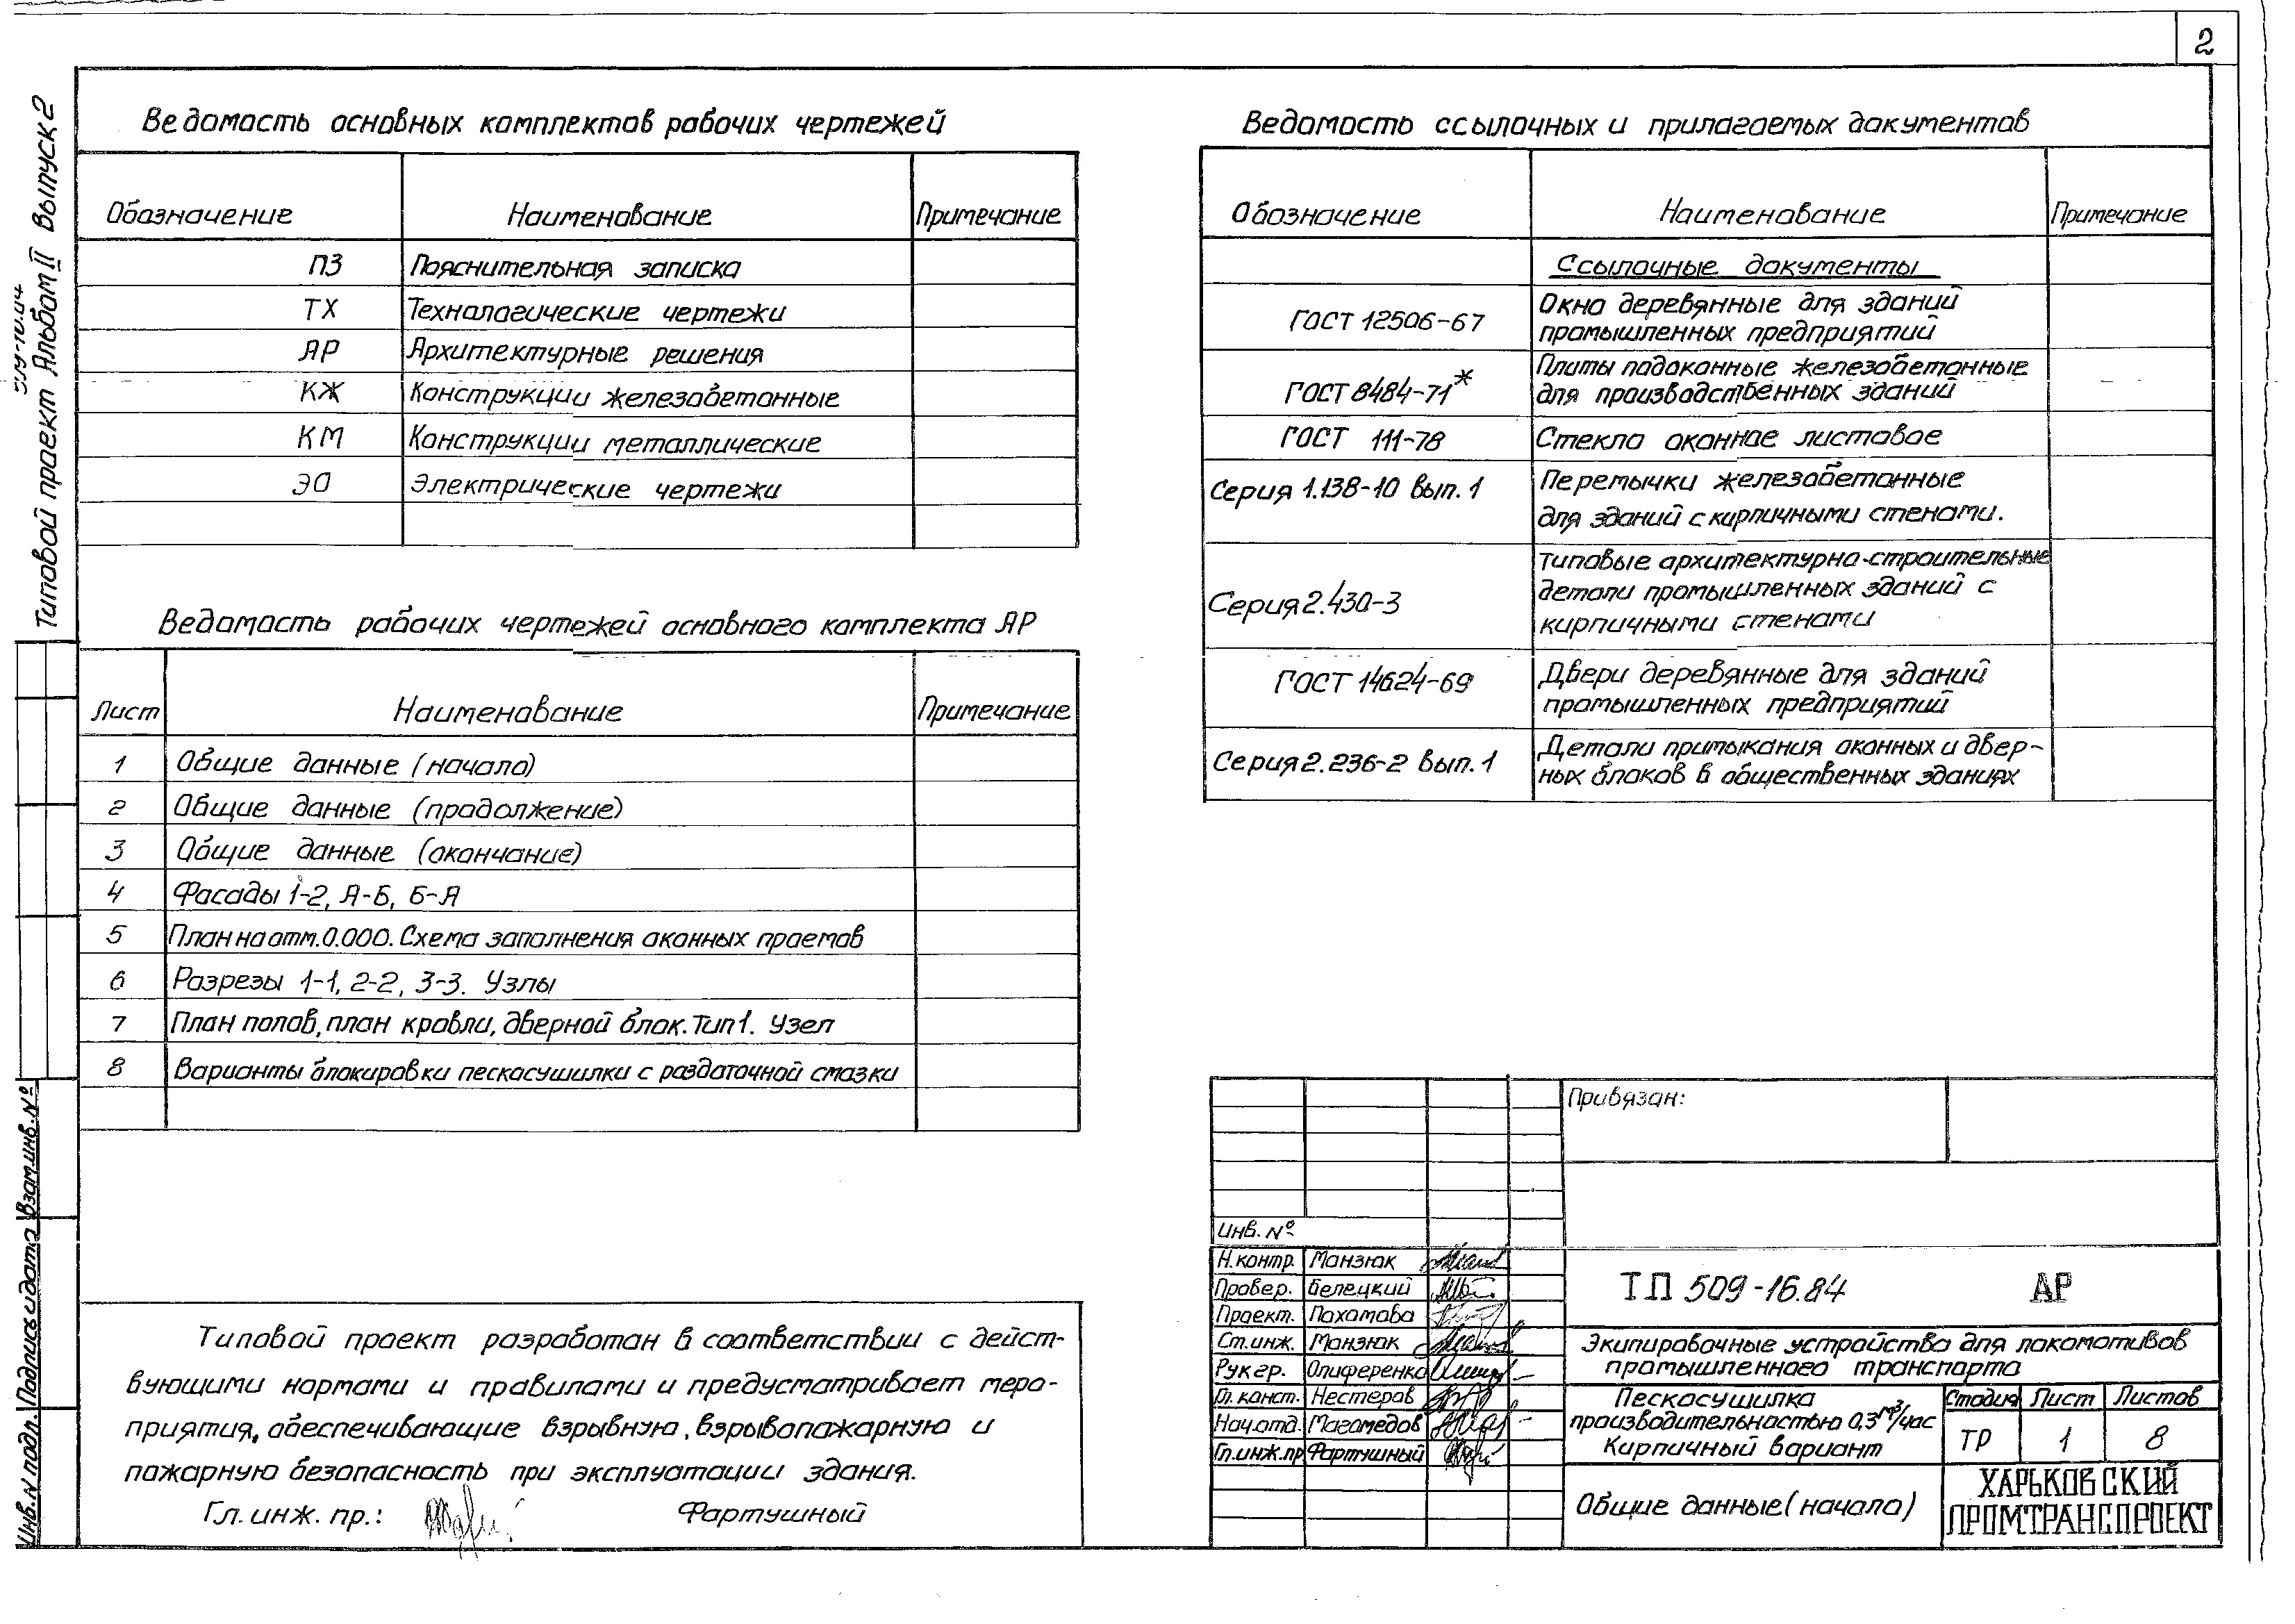 2
Типовой проект Альбом II Выпуск 2
Ведомость основных комплектов рабочих чертежей
Обозначение Наименование Примечание
ПЗ Пояснительная записка
ТХ Технологические чертежи
АР Архитектурные решения
КЖ Конструкции железобетонные
КМ Конструкции металлические
ЭО Электрические чертежи
Ведомость рабочих чертежей основного комплекта АР
Лист Наименование Примечание
1 Общие данные (начало)
2 Общие данные (продолжение)
3 Общие данные (окончание)
4 Фасады 1-2, А-Б, Б-А
5 План на отм. 0.000. Схема заполнения оконных проемов
6 Разрезы 1-1, 2-2, 3-3. Узлы
7 План полов, план кровли, дверной блок. Тип 1. Узел
8 Варианты блокировки пескосушилки с раздаточной смазки
Типовой проект разработан в соответствии с дейст-
вующими нормами и правилами и предусматривает меро-
приятия, обеспечивающие взрывную, взрывопожарную и
пожарную безопасность при эксплуатации здания.
Гл. инж. пр.: Фартушный
Ведомость ссылочных и прилагаемых документов
Обозначение Наименование Примечание
Ссылочные документы
ГОСТ 12506-67 Окна деревянные для зданий
промышленных предприятий
ГОСТ 8484-71* Плиты подоконные железобетонные
для производственных зданий
ГОСТ 111-78 Стекло оконное листовое
Серия 1.138-10 вып. 1 Перемычки железобетонные
для зданий с кирпичными стенами.
Серия 2.430-3 Типовые архитектурно-строительные
детали промышленных зданий с
кирпичными стенами
ГОСТ 14624-69 Двери деревянные для зданий
промышленных предприятий
Серия 2.236-2 Вып. 1 Детали примыкания оконных и двер-
ных блоков в общественных зданиях
Привязан:
Инв. №
Н. контр. Манзюк
Провер. Белецкий
Проект. Пахомова
Ст. инж. Манзюк
Рук гр. Олиференко
Гл. конст. Нестеров
Нач. отд. Магомедов
Гл. инж. пр Фартушный
ТП 509-16.84 АР
Экипировочные устройства для локомотивов
промышленного транспорта
Пескосушилка
производительностью 0,3 м³/час
Кирпичный вариант
Стадия Лист Листов
ТР 1 8
Общие данные (начало)
ХАРЬКОВСКИЙ
ПРОМТРАНСПРОЕКТ
Инв. N подл. Подпись и дата Взам. инв. №